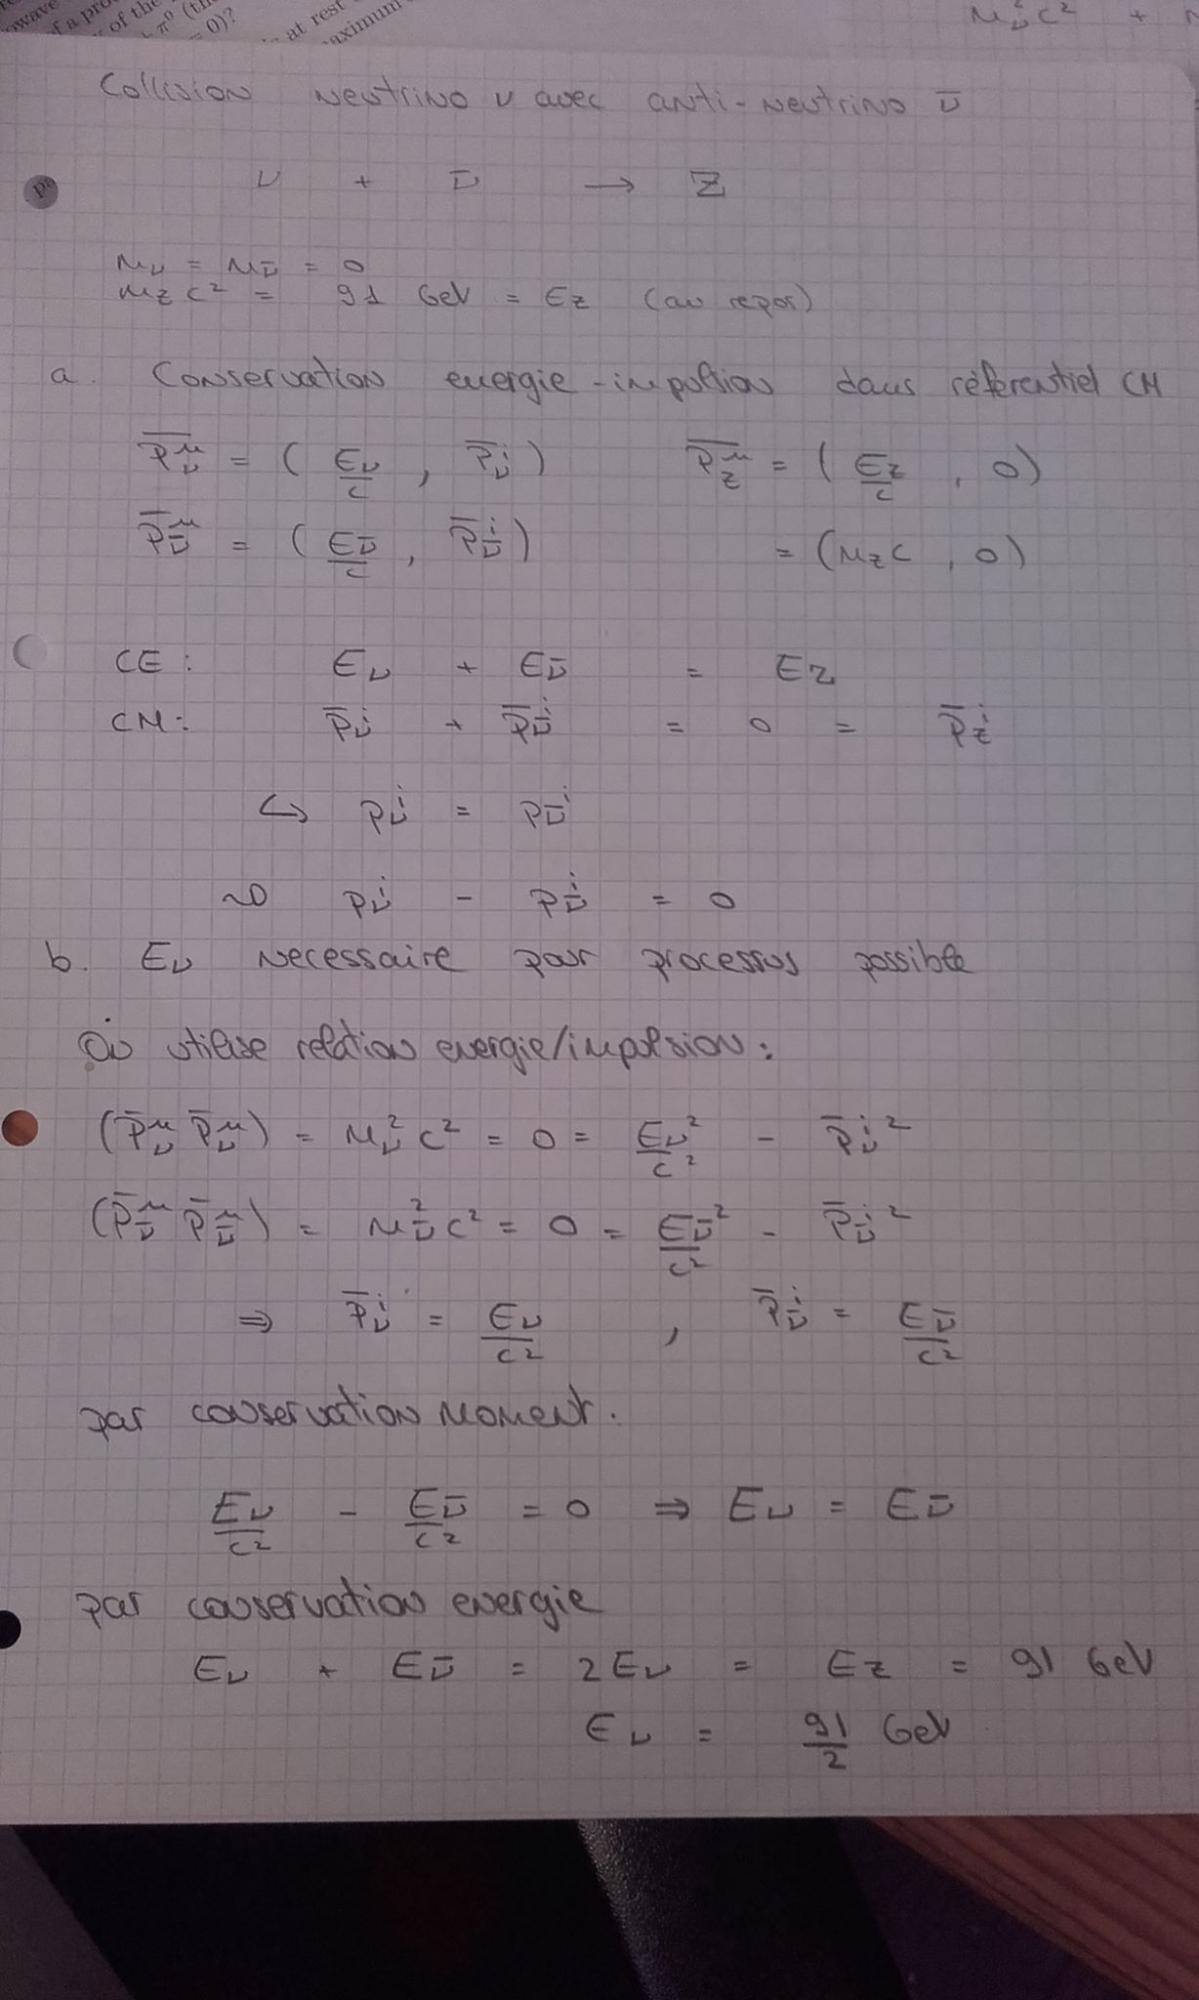 wave
of a pro
of the
π⁰ (th
= 0)?
at rest
aximum
m²_ν̄ c² +
Collision neutrino ν avec anti-neutrino ν̄
ν + ν̄ → Z
m_ν = m_ν̄ = 0
m_Z c² = 91 GeV = E_Z (au repos)
a. Conservation energie-impulsion dans référentiel CM
P̄^μ_ν = ( E_ν/c , P̄^i_ν ) P̄^μ_Z = ( E_Z/c , 0 )
P̄^μ_ν̄ = ( E_ν̄/c , P̄^i_ν̄ ) = (m_Z c , 0)
CE: E_ν + E_ν̄ = E_Z
CM: P̄^i_ν + P̄^i_ν̄ = 0 = P̄^i_Z
↪ P^i_ν = P^i_ν̄
~D P^i_ν - P^i_ν̄ = 0
b. E_ν necessaire pour processus possible
On utilise relation energie/impulsion:
(P̄^μ_ν P̄^μ_ν) = m²_ν c² = 0 = E_ν²/c² - P̄^i_ν²
(P̄^μ_ν̄ P̄^μ_ν̄) = m²_ν̄ c² = 0 = E_ν̄²/c² - P̄^i_ν̄²
⇒ P̄^i_ν = E_ν/c² , P̄^i_ν̄ = E_ν̄/c²
par conservation moment.
E_ν/c² - E_ν̄/c² = 0 ⇒ E_ν = E_ν̄
par conservation energie
E_ν + E_ν̄ = 2E_ν = E_Z = 91 GeV
E_ν = 91/2 GeV